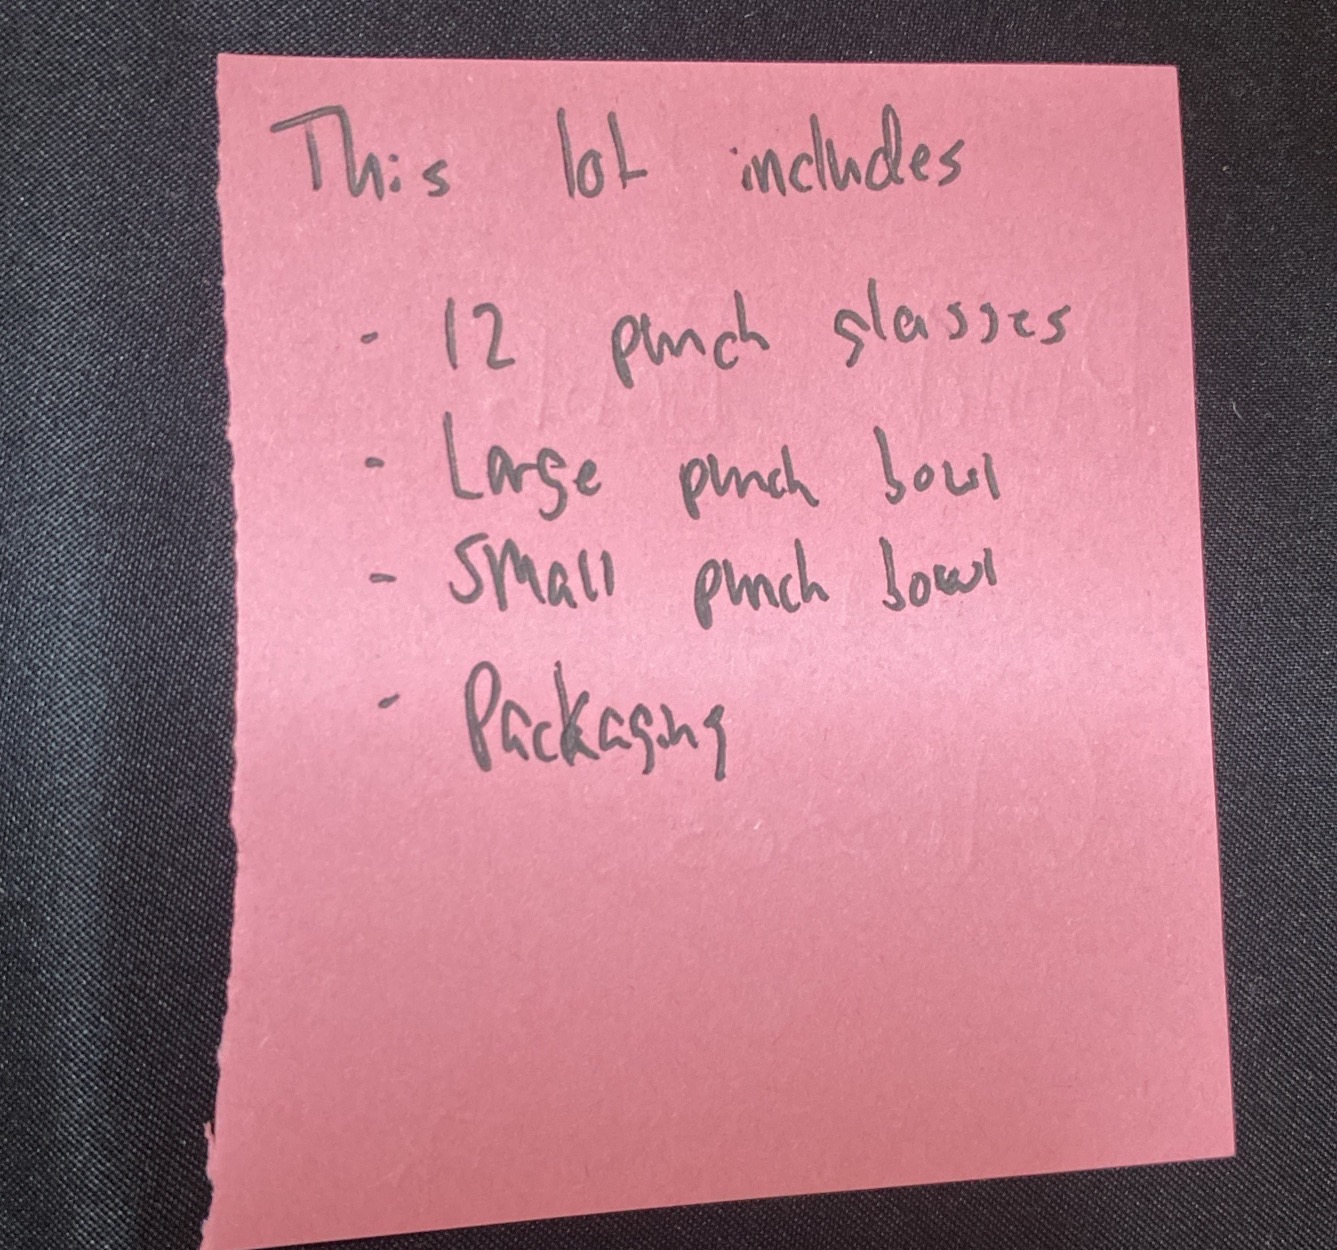 This lot includes
- 12 punch glasses
- Large punch bowl
- Small punch bowl
- Packaging